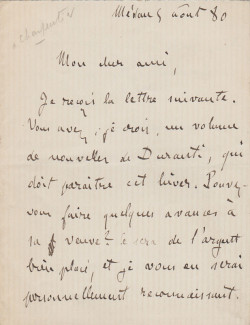 charpentier
Médan 5 août 80
Mon cher ami,
Je reçois la lettre suivante.
Vous avez, je crois, un volume
de nouvelles de Duranti, qui
doit paraître cet hiver. Pouvez-
vous faire quelques avances à
sa veuve? Ce sera de l'argent
bien placé, et je vous en serai
personnellement reconnaissant.